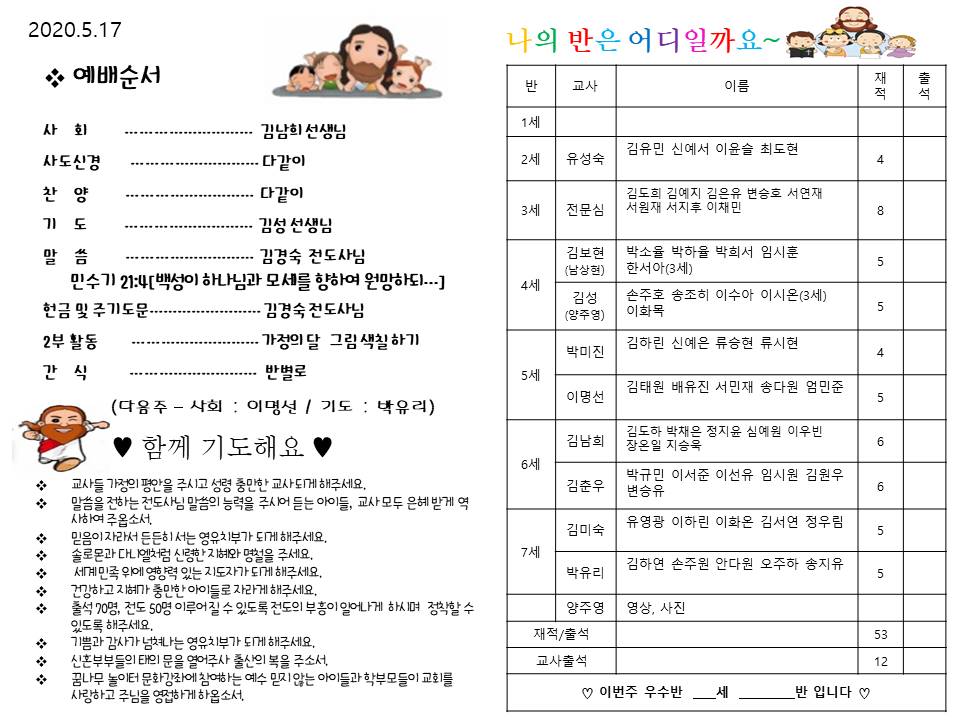 2020.5.17
❖ 예배순서
사 회 --------------------------- 김남희 선생님
사도신경 --------------------------- 다같이
찬 양 --------------------------- 다같이
기 도 --------------------------- 김성 선생님
말 씀 --------------------------- 김경숙 전도사님
민수기 21:4[백성이 하나님과 모세를 향하여 원망하되…]
헌금 및 주기도문----------------------- 김경숙전도사님
2부 활동 --------------------------- 가정의 달 그림 색칠하기
간 식 --------------------------- 반별로
(다음주 – 사회 : 이명선 / 기도 : 박유리)
♥ 함께 기도해요 ♥
❖ 교사들 가정의 평안을 주시고 성령 충만한 교사되게 해주세요.
❖ 말씀을 전하는 전도사님 말씀의 능력을 주시어 듣는 아이들, 교사 모두 은혜 받게 역
사하여 주옵소서.
❖ 믿음이 자라서 든든히 서는 영유치부가 되게 해주세요.
❖ 솔로몬과 다니엘처럼 신령한 지혜와 명철을 주세요.
❖ 세계 민족 위에 영향력 있는 지도자가 되게 해주세요.
❖ 건강하고 지혜가 충만한 아이들로 자라게 해주세요.
❖ 출석 70명, 전도 50명 이루어질 수 있도록 전도의 부흥이 일어나게 하시며 정착할 수
있도록 해주세요.
❖ 기쁨과 감사가 넘쳐나는 영유치부가 되게 해주세요.
❖ 신혼부부들의 태의 문을 열어주사 출산의 복을 주소서.
❖ 꿈나무 놀이터 문화강좌에 참여하는 예수 믿지 않는 아이들과 학부모들이 교회를
사랑하고 주님을 영접하게 하옵소서.
나의 반은 어디일까요~
반 교사 이름 재적 출석
1세
2세 유성숙 김유민 신예서 이윤슬 최도현 4
3세 전문심 김도희 김예지 김은유 변승호 서연재
서원재 서지후 이채민 8
4세 김보현 (남상현) 박소율 박하율 박희서 임시훈
한서아(3세) 5
김성 (양주영) 손주호 송조히 이수아 이시온(3세)
이화목 5
5세 박미진 김하린 신예은 류승현 류시현 4
이명선 김태원 배유진 서민재 송다원 엄민준 5
6세 김남희 김도하 박채은 정지윤 심예원 이우빈
장온일 지승욱 6
김춘우 박규민 이서준 이선유 임시원 김원우
변승유 6
7세 김미숙 유영광 이하린 이화온 김서연 정우림 5
박유리 김하연 손주원 안다원 오주하 송지유 5
양주영 영상, 사진
재적/출석 53
교사출석 12
♡ 이번주 우수반 ___세 ________반 입니다 ♡